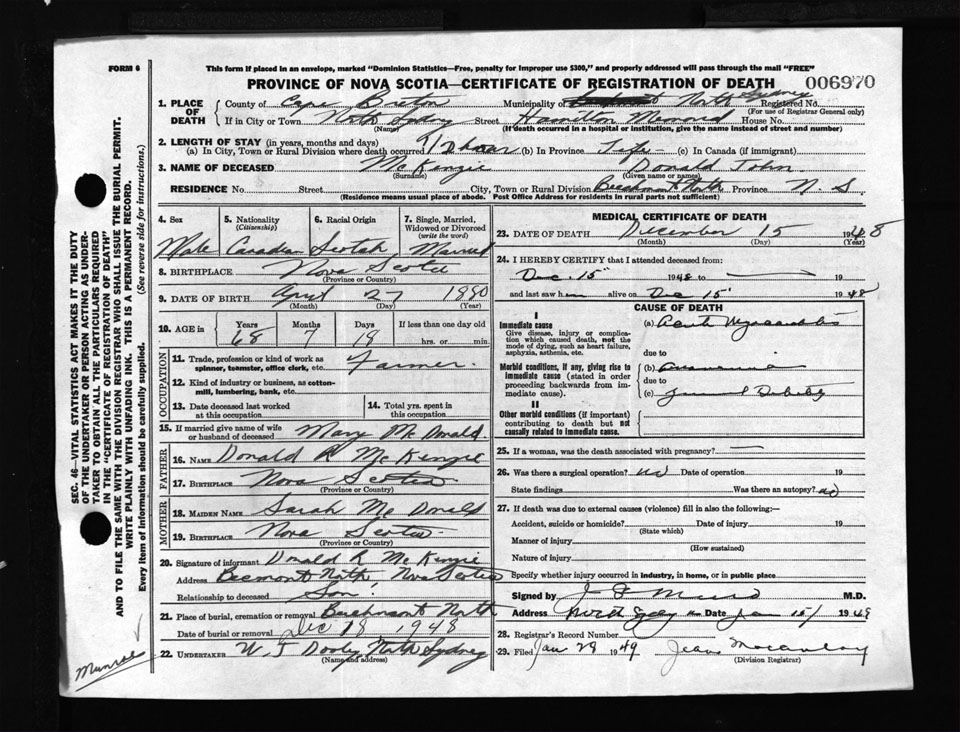 FORM 6
This form if placed in an envelope, marked "Dominion Statistics—Free, penalty for improper use $300," and properly addressed will pass through the mail "FREE"
PROVINCE OF NOVA SCOTIA—CERTIFICATE OF REGISTRATION OF DEATH 006970
1. PLACE OF DEATH
County of Cape Breton Municipality of North Sydney Registered No.
(For use of Registrar General only)
If in City or Town North Sydney Street Hamilton Memorial House No.
(Name) (If death occurred in a hospital or institution, give the name instead of street and number)
2. LENGTH OF STAY (in years, months and days)
(a) In City, Town or Rural Division where death occurred 1 2 hour (b) In Province Life — (c) In Canada (if immigrant)
3. NAME OF DECEASED McKenzie Donald John
(Surname) (Given name or names)
RESIDENCE No. Street City, Town or Rural Division Beechmont North Province N. S.
(Residence means usual place of abode. Post Office Address for residents in rural parts not sufficient)
4. Sex Male
5. Nationality (Citizenship) Canadian
6. Racial Origin Scotch
7. Single, Married, Widowed or Divorced (write the word) Married
8. BIRTHPLACE Nova Scotia
(Province or Country)
9. DATE OF BIRTH April 27 1880
(Month) (Day) (Year)
10. AGE in Years Months Days If less than one day old
68 7 18 hrs. or min.
OCCUPATION
11. Trade, profession or kind of work as spinner, teamster, office clerk, etc. Farmer.
12. Kind of industry or business, as cotton-mill, lumbering, bank, etc.
13. Date deceased last worked at this occupation
14. Total yrs. spent in this occupation
15. If married give name of wife or husband of deceased Mary McDonald.
FATHER
16. NAME Donald R McKenzie
17. BIRTHPLACE Nova Scotia
(Province or Country)
MOTHER
18. MAIDEN NAME Sarah McDonald
19. BIRTHPLACE Nova Scotia
(Province or Country)
20. Signature of informant Donald R McKenzie
Address Beemont North, Nova Scotia
Relationship to deceased Son.
21. Place of burial, cremation or removal Beechmont North
Date of burial or removal Dec 18 1948
22. UNDERTAKER W. J Dooley North Sydney
(Name and address)
MEDICAL CERTIFICATE OF DEATH
23. DATE OF DEATH December 15 1948
(Month) (Day) (Year)
24. I HEREBY CERTIFY that I attended deceased from:
Dec. 15 1948 to — 19
and last saw him alive on Dec 15 1948
CAUSE OF DEATH
I
Immediate cause
Give disease, injury or complication which caused death, not the mode of dying, such as heart failure, asphyxia, asthenia, etc.
(a) Acute Myocarditis
due to
Morbid conditions, if any, giving rise to immediate cause (stated in order proceeding backwards from immediate cause).
(b)
due to
(c) General Debility
II
Other morbid conditions (if important) contributing to death but not causally related to immediate cause.
25. If a woman, was the death associated with pregnancy? —
26. Was there a surgical operation? no Date of operation 19
State findings Was there an autopsy? no
27. If death was due to external causes (violence) fill in also the following:—
Accident, suicide or homicide? Date of injury 19
(State which)
Manner of injury
(How sustained)
Nature of injury
Specify whether injury occurred in industry, in home, or in public place
Signed by M.D.
Address North Sydney Date Jan 15/ 1949
28. Registrar's Record Number
29. Filed Jan 28 1949 Jean
(Division Registrar)
SEC. 46—VITAL STATISTICS ACT MAKES IT THE DUTY
OF THE UNDERTAKER OR PERSON ACTING AS UNDERTAKER
TO OBTAIN ALL THE PARTICULARS REQUIRED
IN THE "CERTIFICATE OF REGISTRATION OF DEATH"
AND TO FILE THE SAME WITH THE DIVISION REGISTRAR WHO SHALL ISSUE THE BURIAL PERMIT.
WRITE PLAINLY WITH UNFADING INK. THIS IS A PERMANENT RECORD.
Every item of information should be carefully supplied. (See reverse side for instructions.)
Munroe